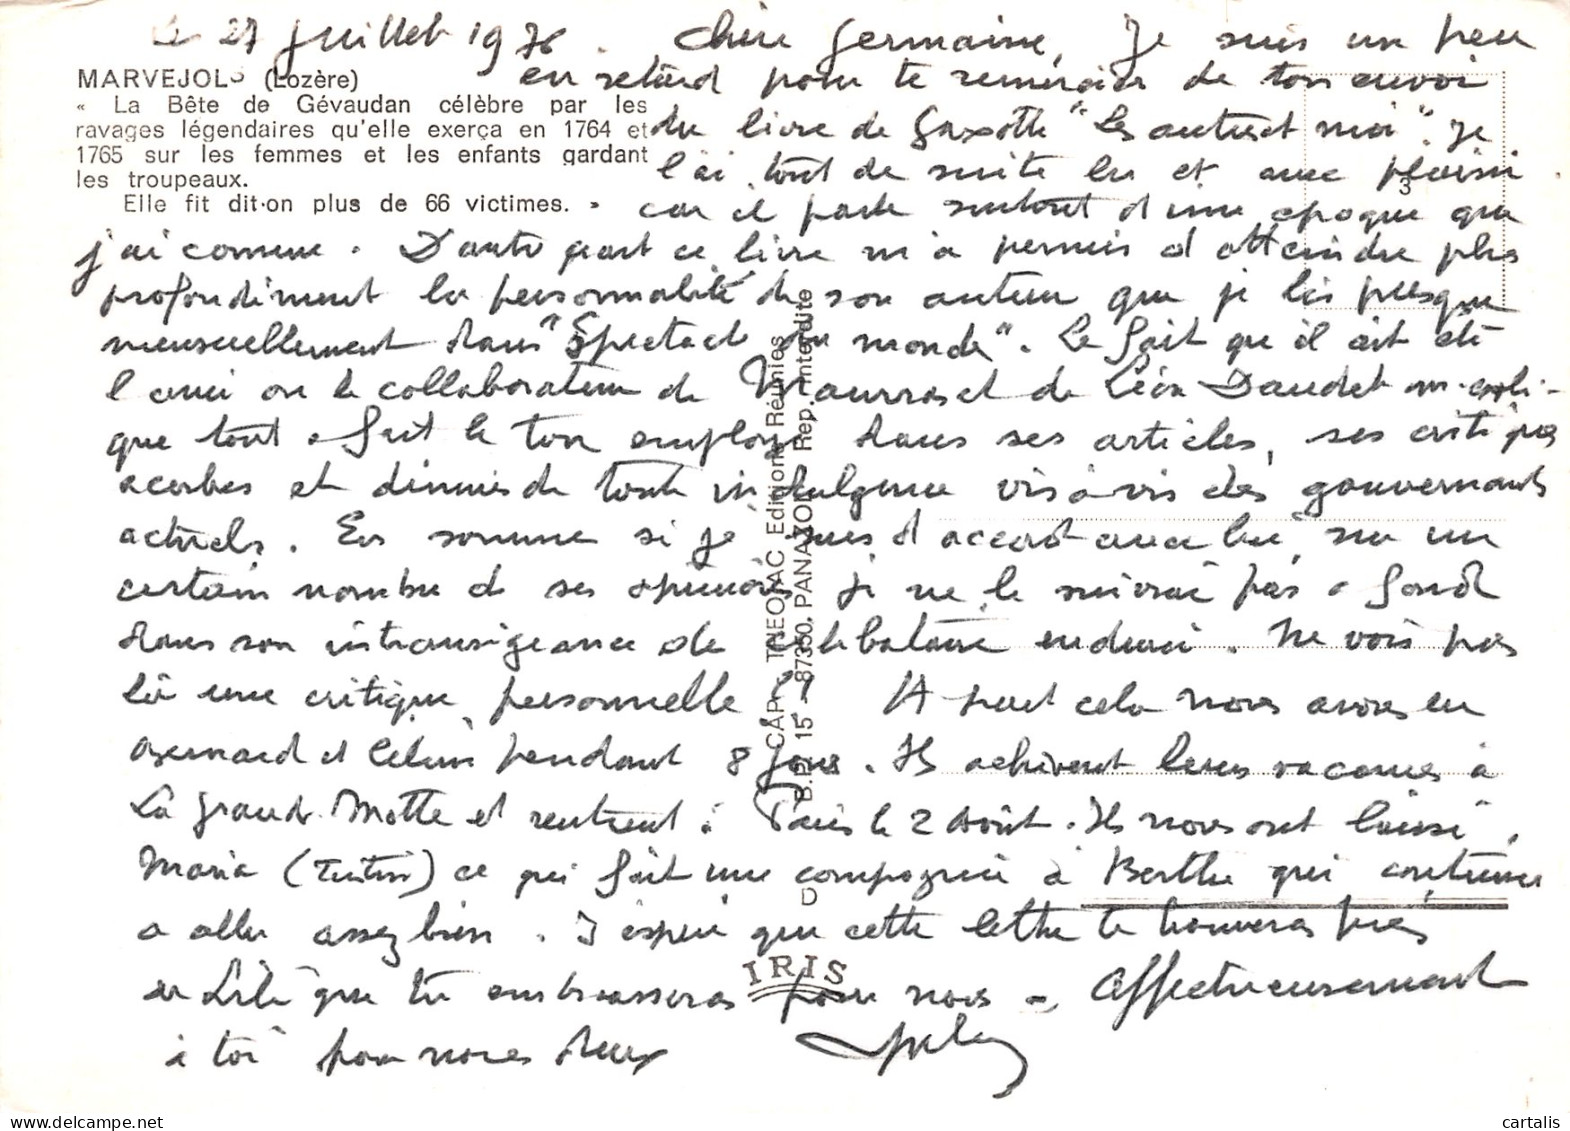 Le 27 Juillet 1976. Chère Germaine, Je suis un peu
MARVEJOLS (Lozère)
en retard pour te remercier de ton envoi
« La Bête de Gévaudan célèbre par les
ravages légendaires qu'elle exerça en 1764 et
1765 sur les femmes et les enfants gardant
les troupeaux.
Elle fit dit-on plus de 66 victimes. »
du livre de Gaxotte "Les autres et moi". Je
l'ai tout de suite lu et avec plaisir
3
car il parle surtout d'une époque que
j'ai connue. D'autre part ce livre m'a permis d'atteindre plus
profondément la personnalité de son auteur que je lis presque
mensuellement dans "Spectacle du monde". Le fait qu'il ait été
l'ami ou le collaborateur de Maurras et de Léon Daudet m'expli-
que tout à fait le ton employé dans ses articles, ses critiques
acerbes et dénuées de toute indulgence vis à vis des gouvernants
actuels. En somme si je suis d'accord avec lui, sur un
certain nombre de ses opinions je ne le suivrai pas à fond
dans son intransigeance de célibataire endurci. Ne vois pas
là une critique personnelle ! A part cela nous avons eu
et pendant 8 jours. Ils achèvent leurs vacances à
La Grande Motte et rentrent à Paris le 2 Août. Ils nous ont laissé
Maria ( ) ce qui fait une compagnie à Berthe qui continue
à aller assez bien. J'espère que cette lettre te trouvera près
de que tu embrasseras pour nous - Affectueusement
à toi pour nous deux
CAP-THEOJAC Editions Réunies
B.P. 15 - 87350, PANAZOL Rep. interdite
D
IRIS
cartalis
delcampe.net